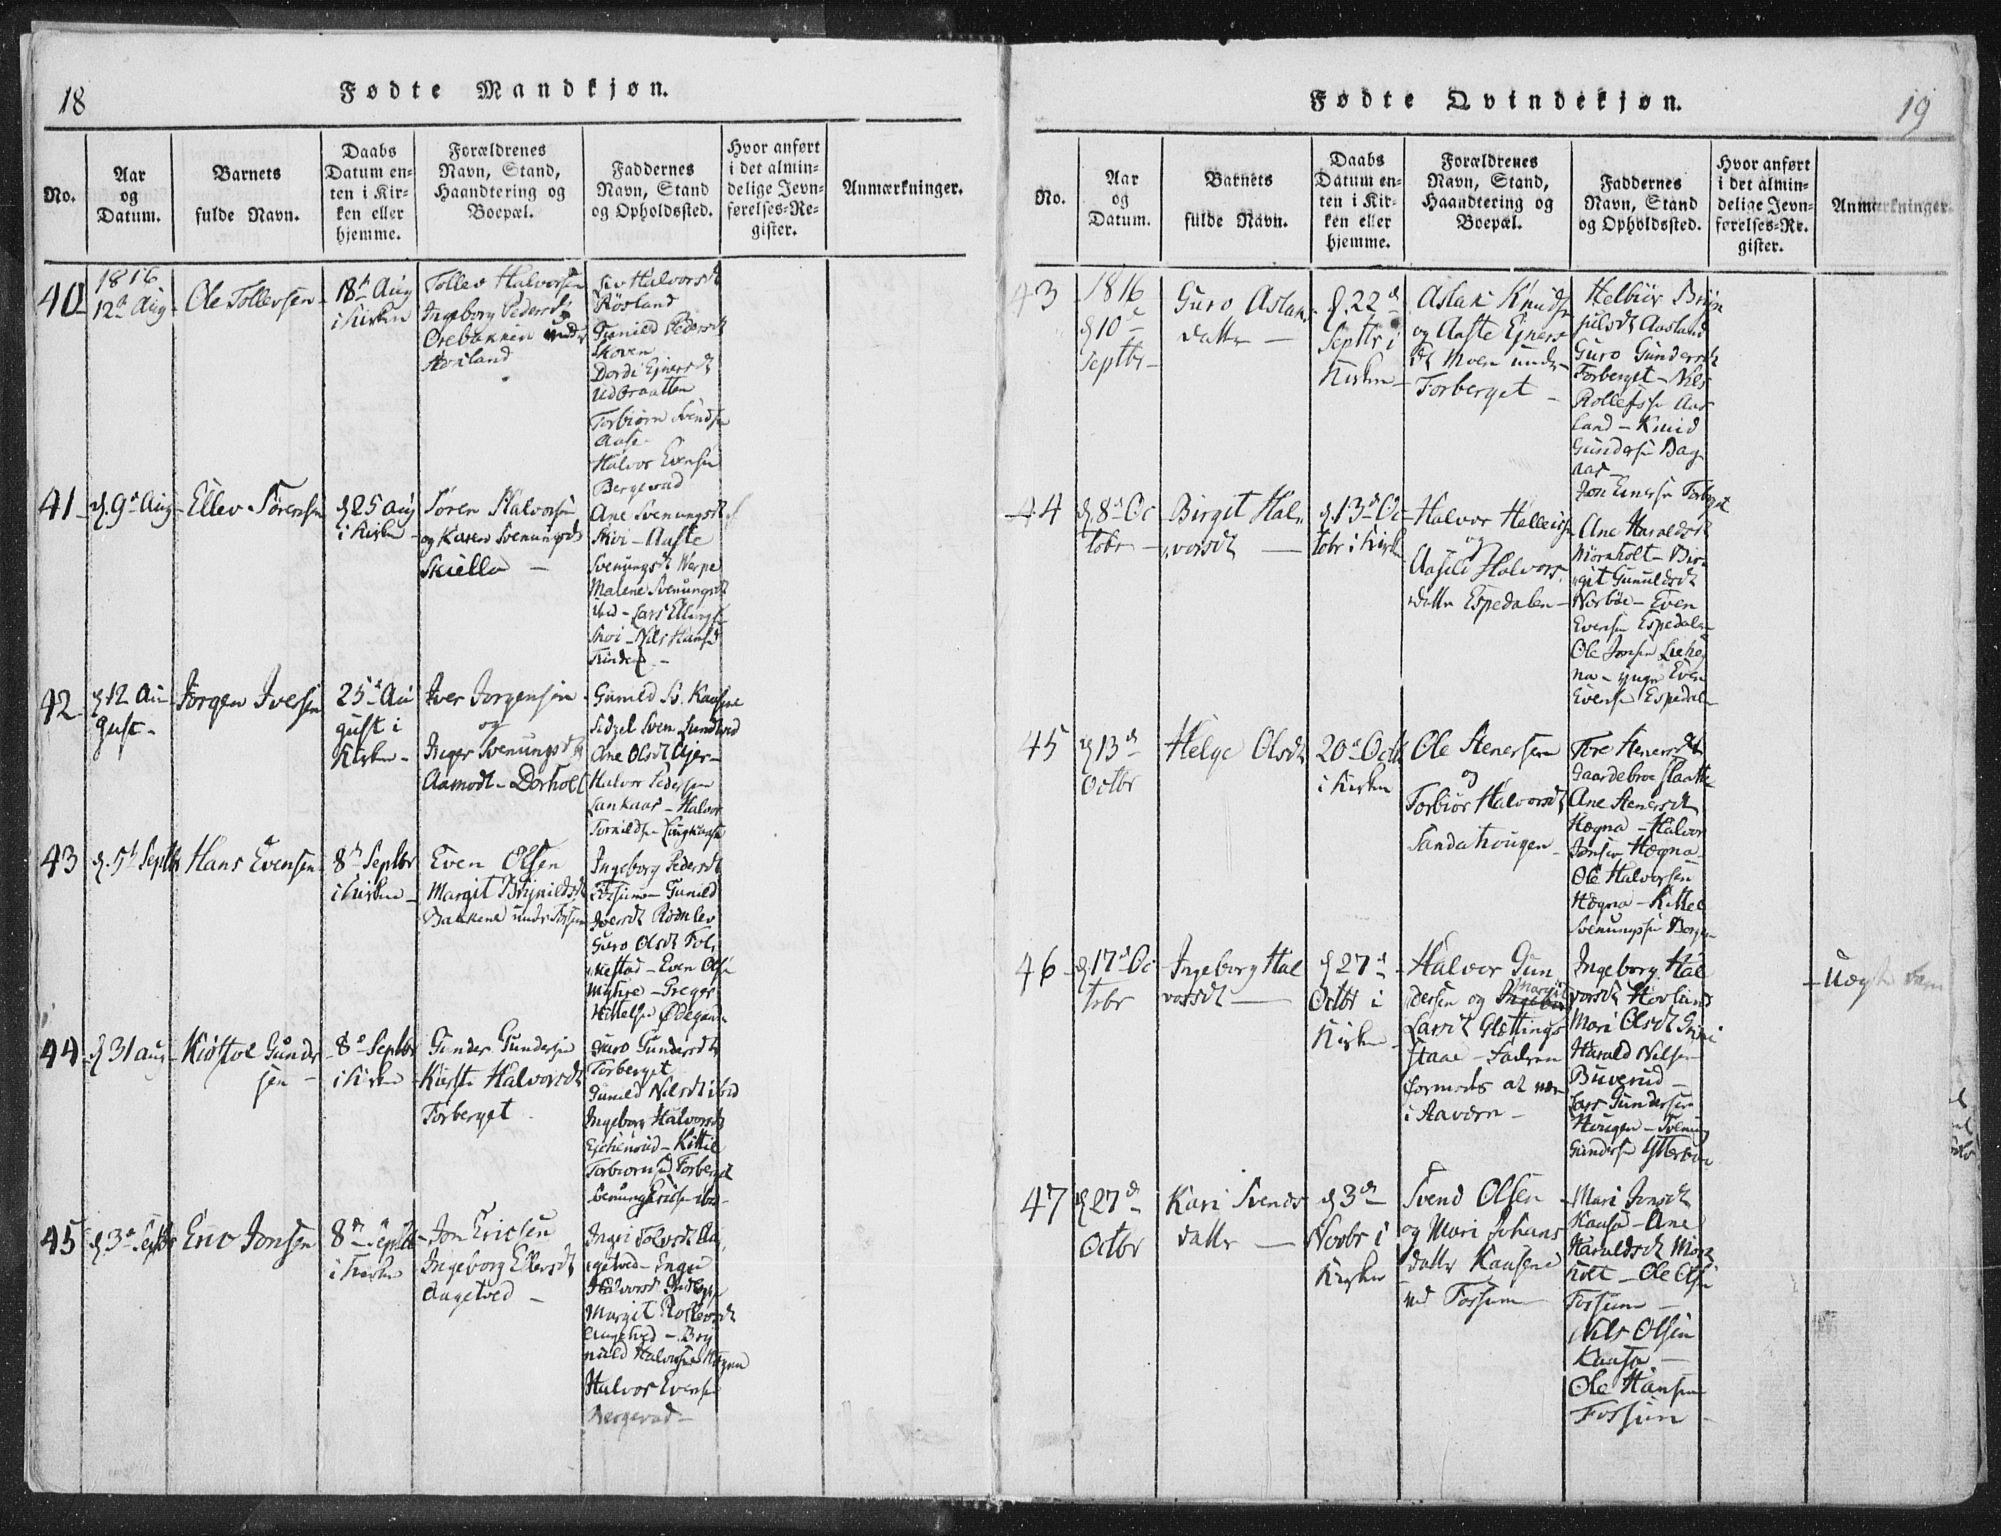 18
Fødte Mandkjøn.
No.
Aar
og
Datum.
Barnets
fulde Navn.
Daabs
Datum en-
ten i Kir-
ken eller
hjemme.
Forældrenes
Navn, Stand,
Haandtering og
Boepæl.
Faddernes
Navn, Stand
og Opholdssted.
Hvor anført
i det almin-
delige Jevn-
førelses-Re-
gister.
Anmærkninger.
40
1816
12t Aug
Ole Tollevsen
18t Aug
i Kirken
Tollev Halvorsen
Ingeborg Pedersd
Orebakken under
Liv Halvorsdt
Røsland
Gunild Pedersdt
Skoven
Dordi Ejnersdt
Torbiørn Svendsen
Aase
Halvor Evensen
Bergerud
41
d. 9d Aug
Ellev Sørensen
d 25 Aug
i Kirken
Søren Halvorsen
og Karen Svenungsdt
Skiello
Ane Svenungsdt
Skoi - Aaste
Svenungsdt Werpe
Malene Svenungsdt
ibid - Lars Ellingsen
Skoi - Nils Hansen
42
d 12 Au
gust -
Jørgen Iversen
25d Au
gust i
Kirken -
Iver Jorgensen
og
Inger Svenungsdt
Aamodt - Dorholt
Gunild Sv. Kaasene
Sidzel Sven Lundteid
Ane Olsdt Ajer
Halvor Pedersen
Lankaas - Halvor
43
d. 5t Septbr
Hans Evensen
8d Septbr
i Kirken
Even Olsen
Margit Brynildsdt
Bakkene under Fossum
Ingeborg Pedersdt
Fossum - Gunild
Iversdt Rønlev
Guro Olsdt Fols
mestad - Even Olsen
Myhre - Greger
Kittelsen Ødegaarden
44
d 31 aug
Kiøttel Gunder
sen -
8d Septbr
i Kirken
Gunder Gundersen
Kirsti Halvorsdt
Forberget
Guro Gundersdt
Forberget
Gunild Nilsdt ibid
Ingeborg Halvorsdt
Eschenrud - Kittil
Torbiornsen Forberget
Svenung Ericsen ibid
45
d 3d Septbr
Eric Jonsen
8d Septbr
i Kirken
Jon Ericsen
Ingeborg Ellevsdt
Augetved -
Ingri Tolvsdt Au
getved - Inger
Halvorsdt
Margit Rollevsdt
Augetved - Bryn
nild Halvorsen Haugen
Halvor Evensen
Bergerud -
19
Fødte Qvindekjøn.
No.
Aar
og
Datum.
Barnets
fulde Navn.
Daabs
Datum en-
ten i Kir-
ken eller
hjemme.
Forældrenes
Navn, Stand,
Haandtering og
Boepæl.
Faddernes
Navn, Stand
og Opholdssted.
Hvor anført
i det almin-
delige Jevn-
førelses-Re-
gister.
Anmærkninger.
43
1816
d 10d
Septbr -
Guro Aslaks
datter -
d. 22d
Septbr i
Kirken -
Aslak Knudsen
og Aaste Ejners
dt Moen under
Forberget -
Helbiør Bryn
julsdt Aasland
Guro Gundersdt
Forberget - Nils
Rollefsen Aas
land - Knud
Gundersen Bag
aas
Jon Einersen Forberget
44
d. 8d Oc
tobr
Birgit Hal
vorsdt
d. 13d Oc
tobr i Kirken
Halvor Hellecsen
og
Aasild Halvors
datter Espedalen -
Ane Haraldsdt
Mörkholt - Bir
git Gunuldsdt
Norböe - Even
Evensen Espedalen
Ole Jonsen Liehog
na - yngre Even
Evensen Espedalen
45
d 13d
Octbr
Helge Olsdt
20d Octbr
i Kirken
Ole Stenersen
og
Torbiør Halvorsdt
Sandahougen -
Tore Stenersdt
Gaardebroe Slaatte
Ane Stenersdt
Hægna - Halvor
Jonsen Hægna
Ole Halvorsen
Hægna - Kittel
Svenungsen Bergan
46
d 17d Oc
tobr
Ingeborg Hal
vorsdt
d 27d
Octbr i
Kirken -
Halvor Gun
dersen og Margit
Larsdt Glettings
staae - Faderen
formodes at være
i Stavern -
Ingeborg Hal
vorsdt Hovland
Mari Olsdt Grini
Harald Nilsen
Buverud
Lars Gundersen
Hougen - Svenung
Gundersen Ytterbøe
Uægte barn
47
d 27d
Octbr
Kari Svends
datter
d 3d
Novbr i
Kirken
Svend Olsen
og Mari Johans
datter Kaasene
ved Fossum
Mari Jonsdt
Kaasa - Ane
Haraldsdt Mörk
holt - Ole Olsen
Fossum -
Nils Olsen
Kaasa -
Ole Hansen
Fossum -